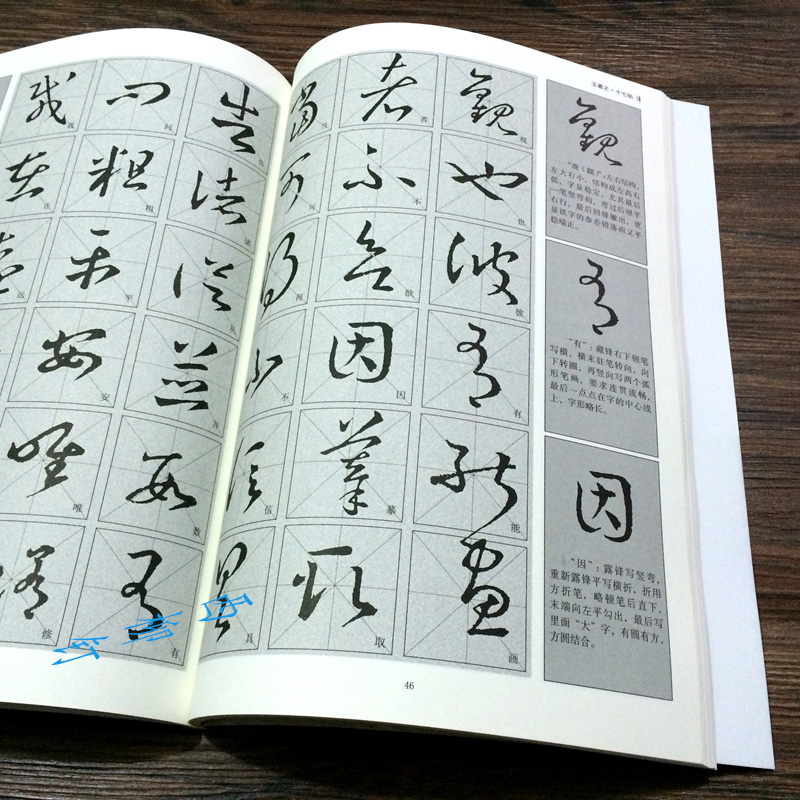 王羲之·十七帖
觀
“观（觀）”：左右结构，
左大右小，结构成左高右
低，字显稳定。尤其最后
一笔竖弯钩，弯过后极平
右行，最后回锋撇出，更
显该字的参差错落而又平
稳端正。
有
“有”：藏锋右下顿笔
写横，横末驻笔转向，向
下转圈，再竖向写两个弧
形笔画，要求连贯流畅，
最后一点点在字的中心线
上，字形略长。
因
“因”：露锋写竖弯，
重新露锋平写横折，折用
方折笔，略顿笔后直下，
末端向左平勾出，最后写
里面“大”字，有圆有方，
方圆结合。
观也彼有能画
者不欲因摹取
当可得不信具
告谘从并数有
问粗平安唯修
我在远
46